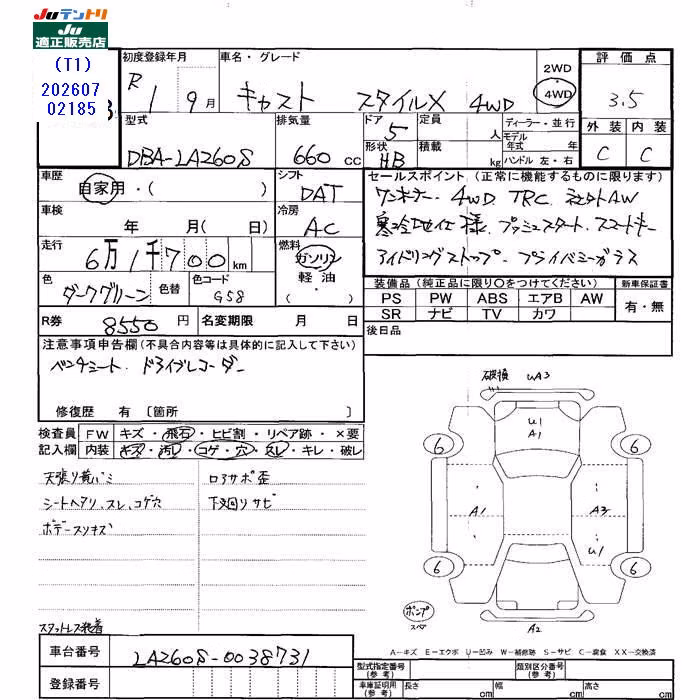 Juテントリ
Ju
適正販売店
(T1)
202607
02185
初度登録年月
R 1 9月
車名・グレード
キャスト スタイルX 4WD
2WD
4WD
評価点
3.5
外装 内装
C C
型式
DBA-LA260S
排気量
660 cc
ドア
5
形状
HB
定員
人
積載
kg
ディーラー・並行
モデル
年式 年
ハンドル 左・右
車歴
自家用・( )
シフト
DAT
セールスポイント (正常に機能するものに限ります)
ワンオーナー. 4WD TRC. 社外AW
寒冷地仕様. プッシュスタート. スマートキー
アイドリングストップ. プライバシーガラス
車検
年 月( 日)
冷房
AC
走行
6万1千700km
燃料
ガソリン
軽・油
( )
色
ダークグリーン
色替
色コード
G58
装備品 (純正品に限り〇をつけてください)
新車保証書
PS PW ABS エアB AW
SR ナビ TV カワ
有・無
R券
8550円
名変期限 月 日
後日品
注意事項申告欄 (不具合内容等は具体的に記入して下さい)
ベンチシート. ドライブレコーダー
修復歴 有 [箇所 ]
検査員
記入欄
FW キズ・飛石・ヒビ割・リペア跡・×要
内装 キズ・汚レ・コゲ・穴・スレ・キレ・破レ
天張り黄バミ
シートヘタリ、スレ、コゲ穴
ボデースリキズ
ロアサポ歪
下廻りサビ
破損 UA3
U1
A1
6
6
A1
A3
U1
6
6
ポンプ
スペア
A2
スタットレス装着
A…キズ E…エクボ U…凹み W…補修跡 S…サビ C…腐食 XX…交換済
車台番号
LA260S-0038731
登録番号
型式指定番号
(参考)
類別区分番号
(参考)
車庫証明用
(参考)
長さ cm
幅 cm
高さ cm